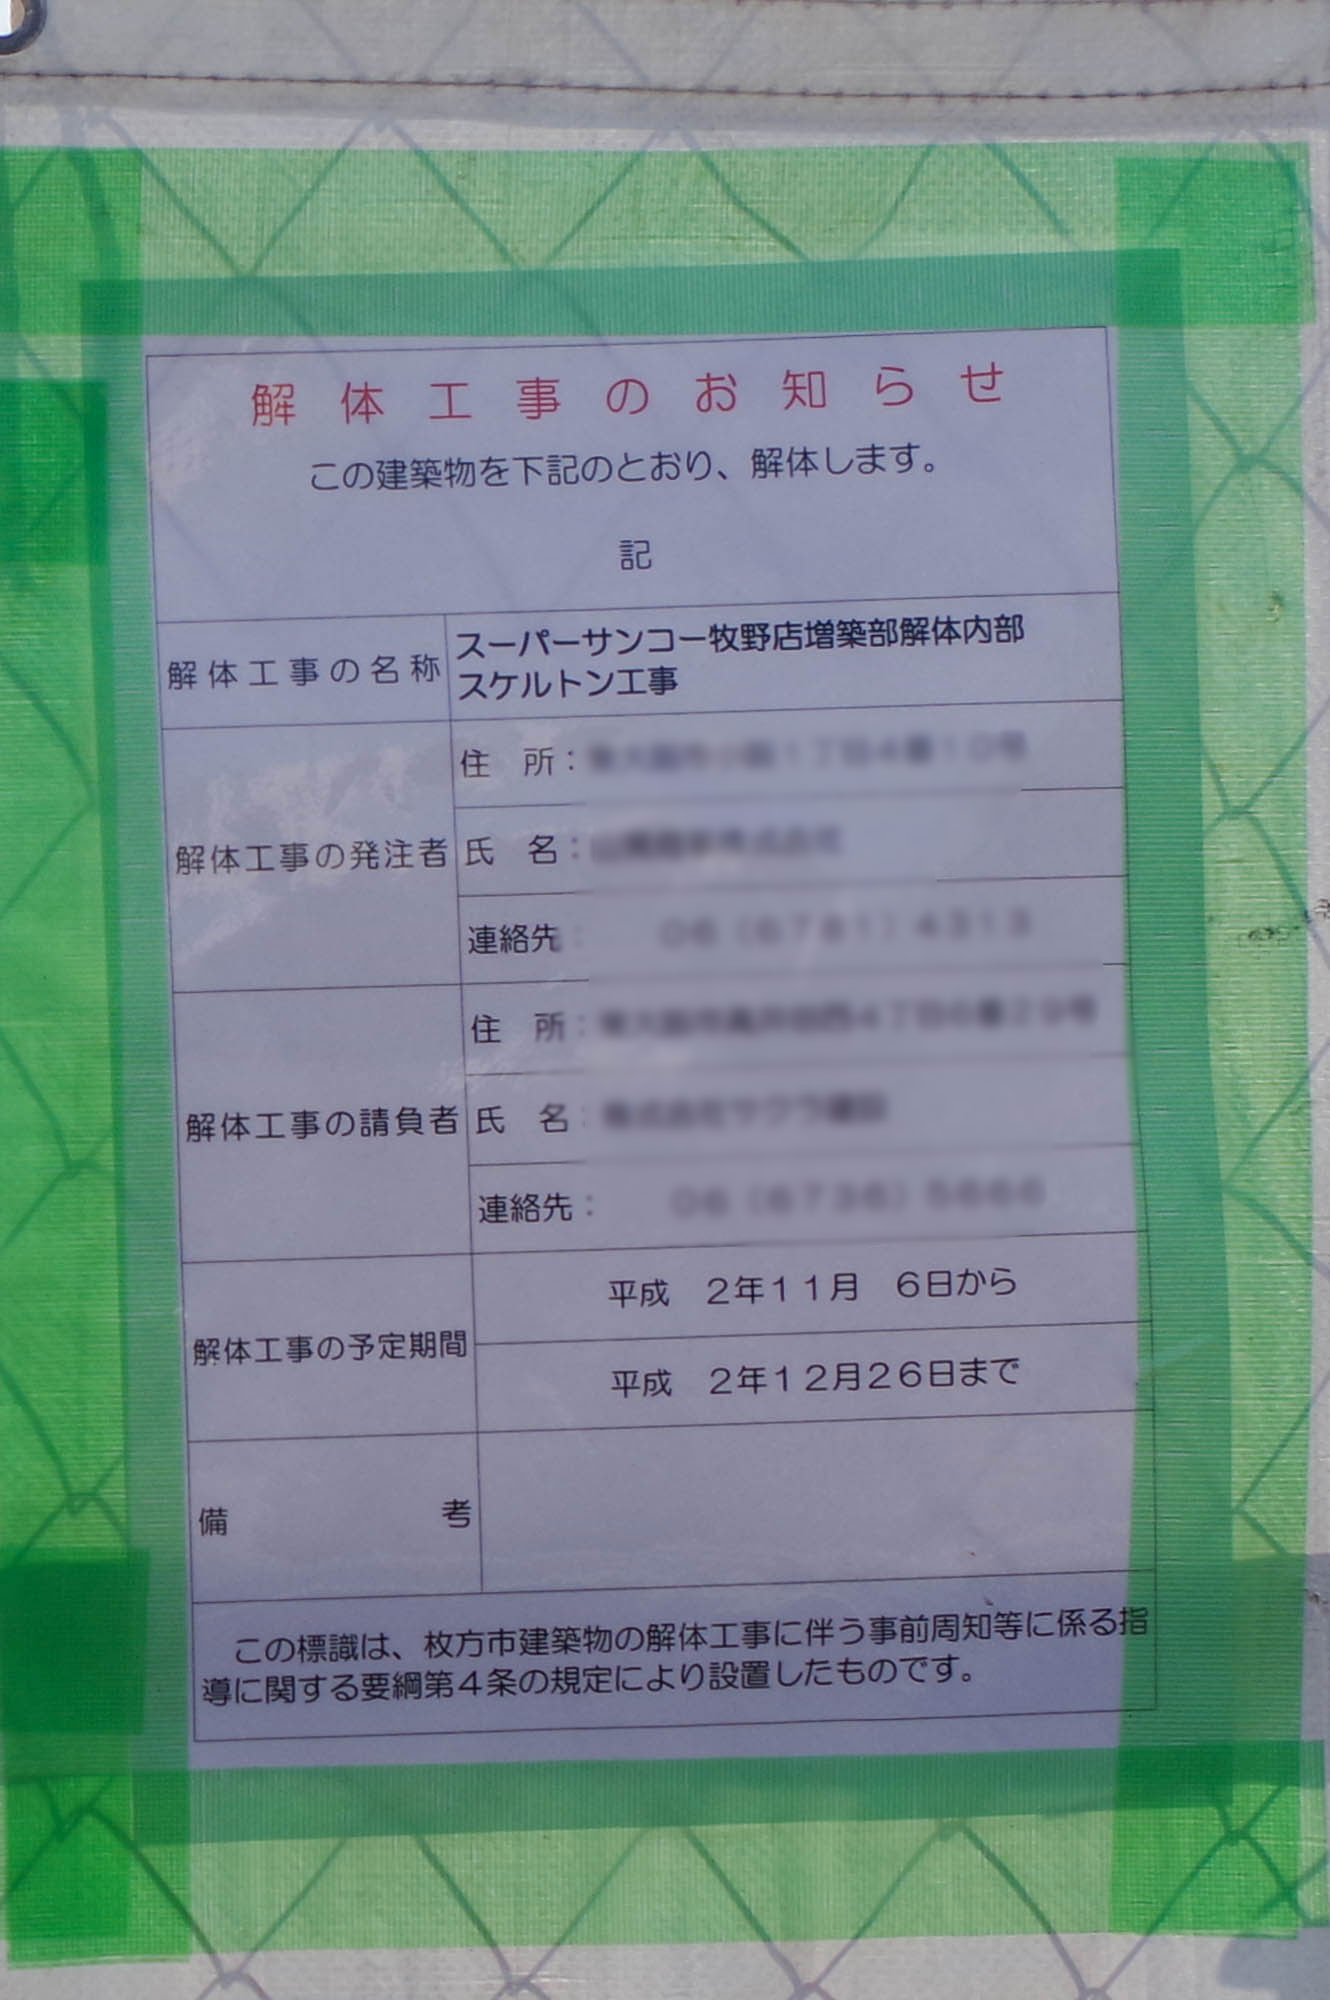 解体工事のお知らせ
この建築物を下記のとおり、解体します。
記
解体工事の名称
スーパーサンコー牧野店増築部解体内部
スケルトン工事
解体工事の発注者
住　所：
氏　名：
連絡先：
解体工事の請負者
住　所：
氏　名：
連絡先：
解体工事の予定期間
平成　２年１１月　６日から
平成　２年１２月２６日まで
備考
この標識は、枚方市建築物の解体工事に伴う事前周知等に係る指
導に関する要綱第４条の規定により設置したものです。